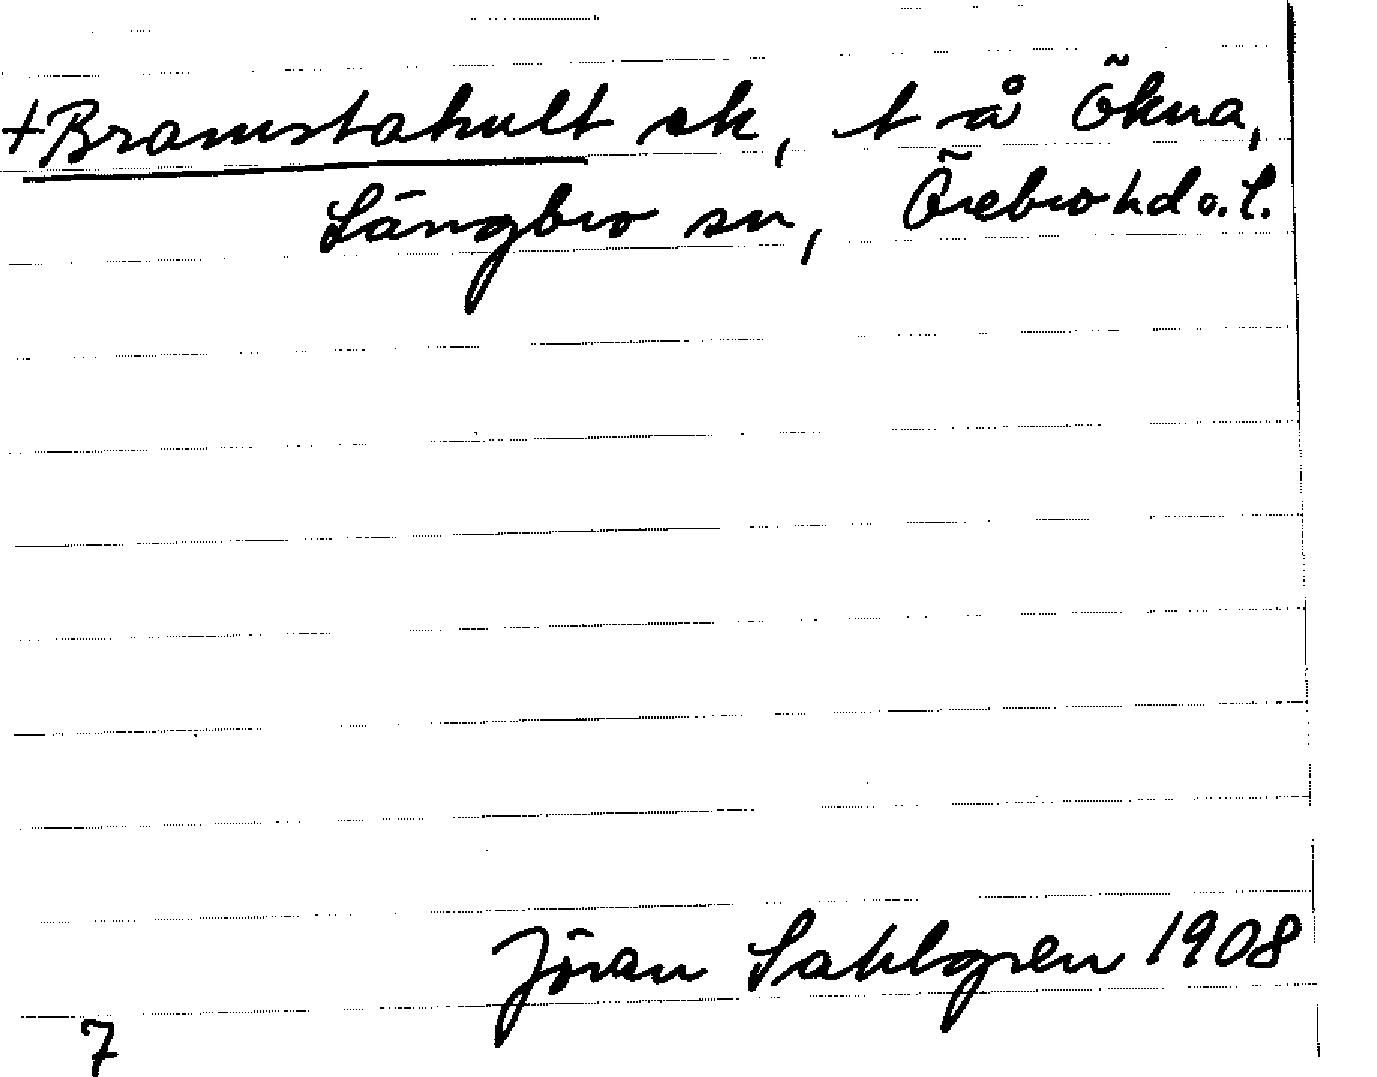 +Bramstahult ek, t å Ökna,
Längbro sn, Örebro hd o. l.
Jöran Sahlgren 1908
7